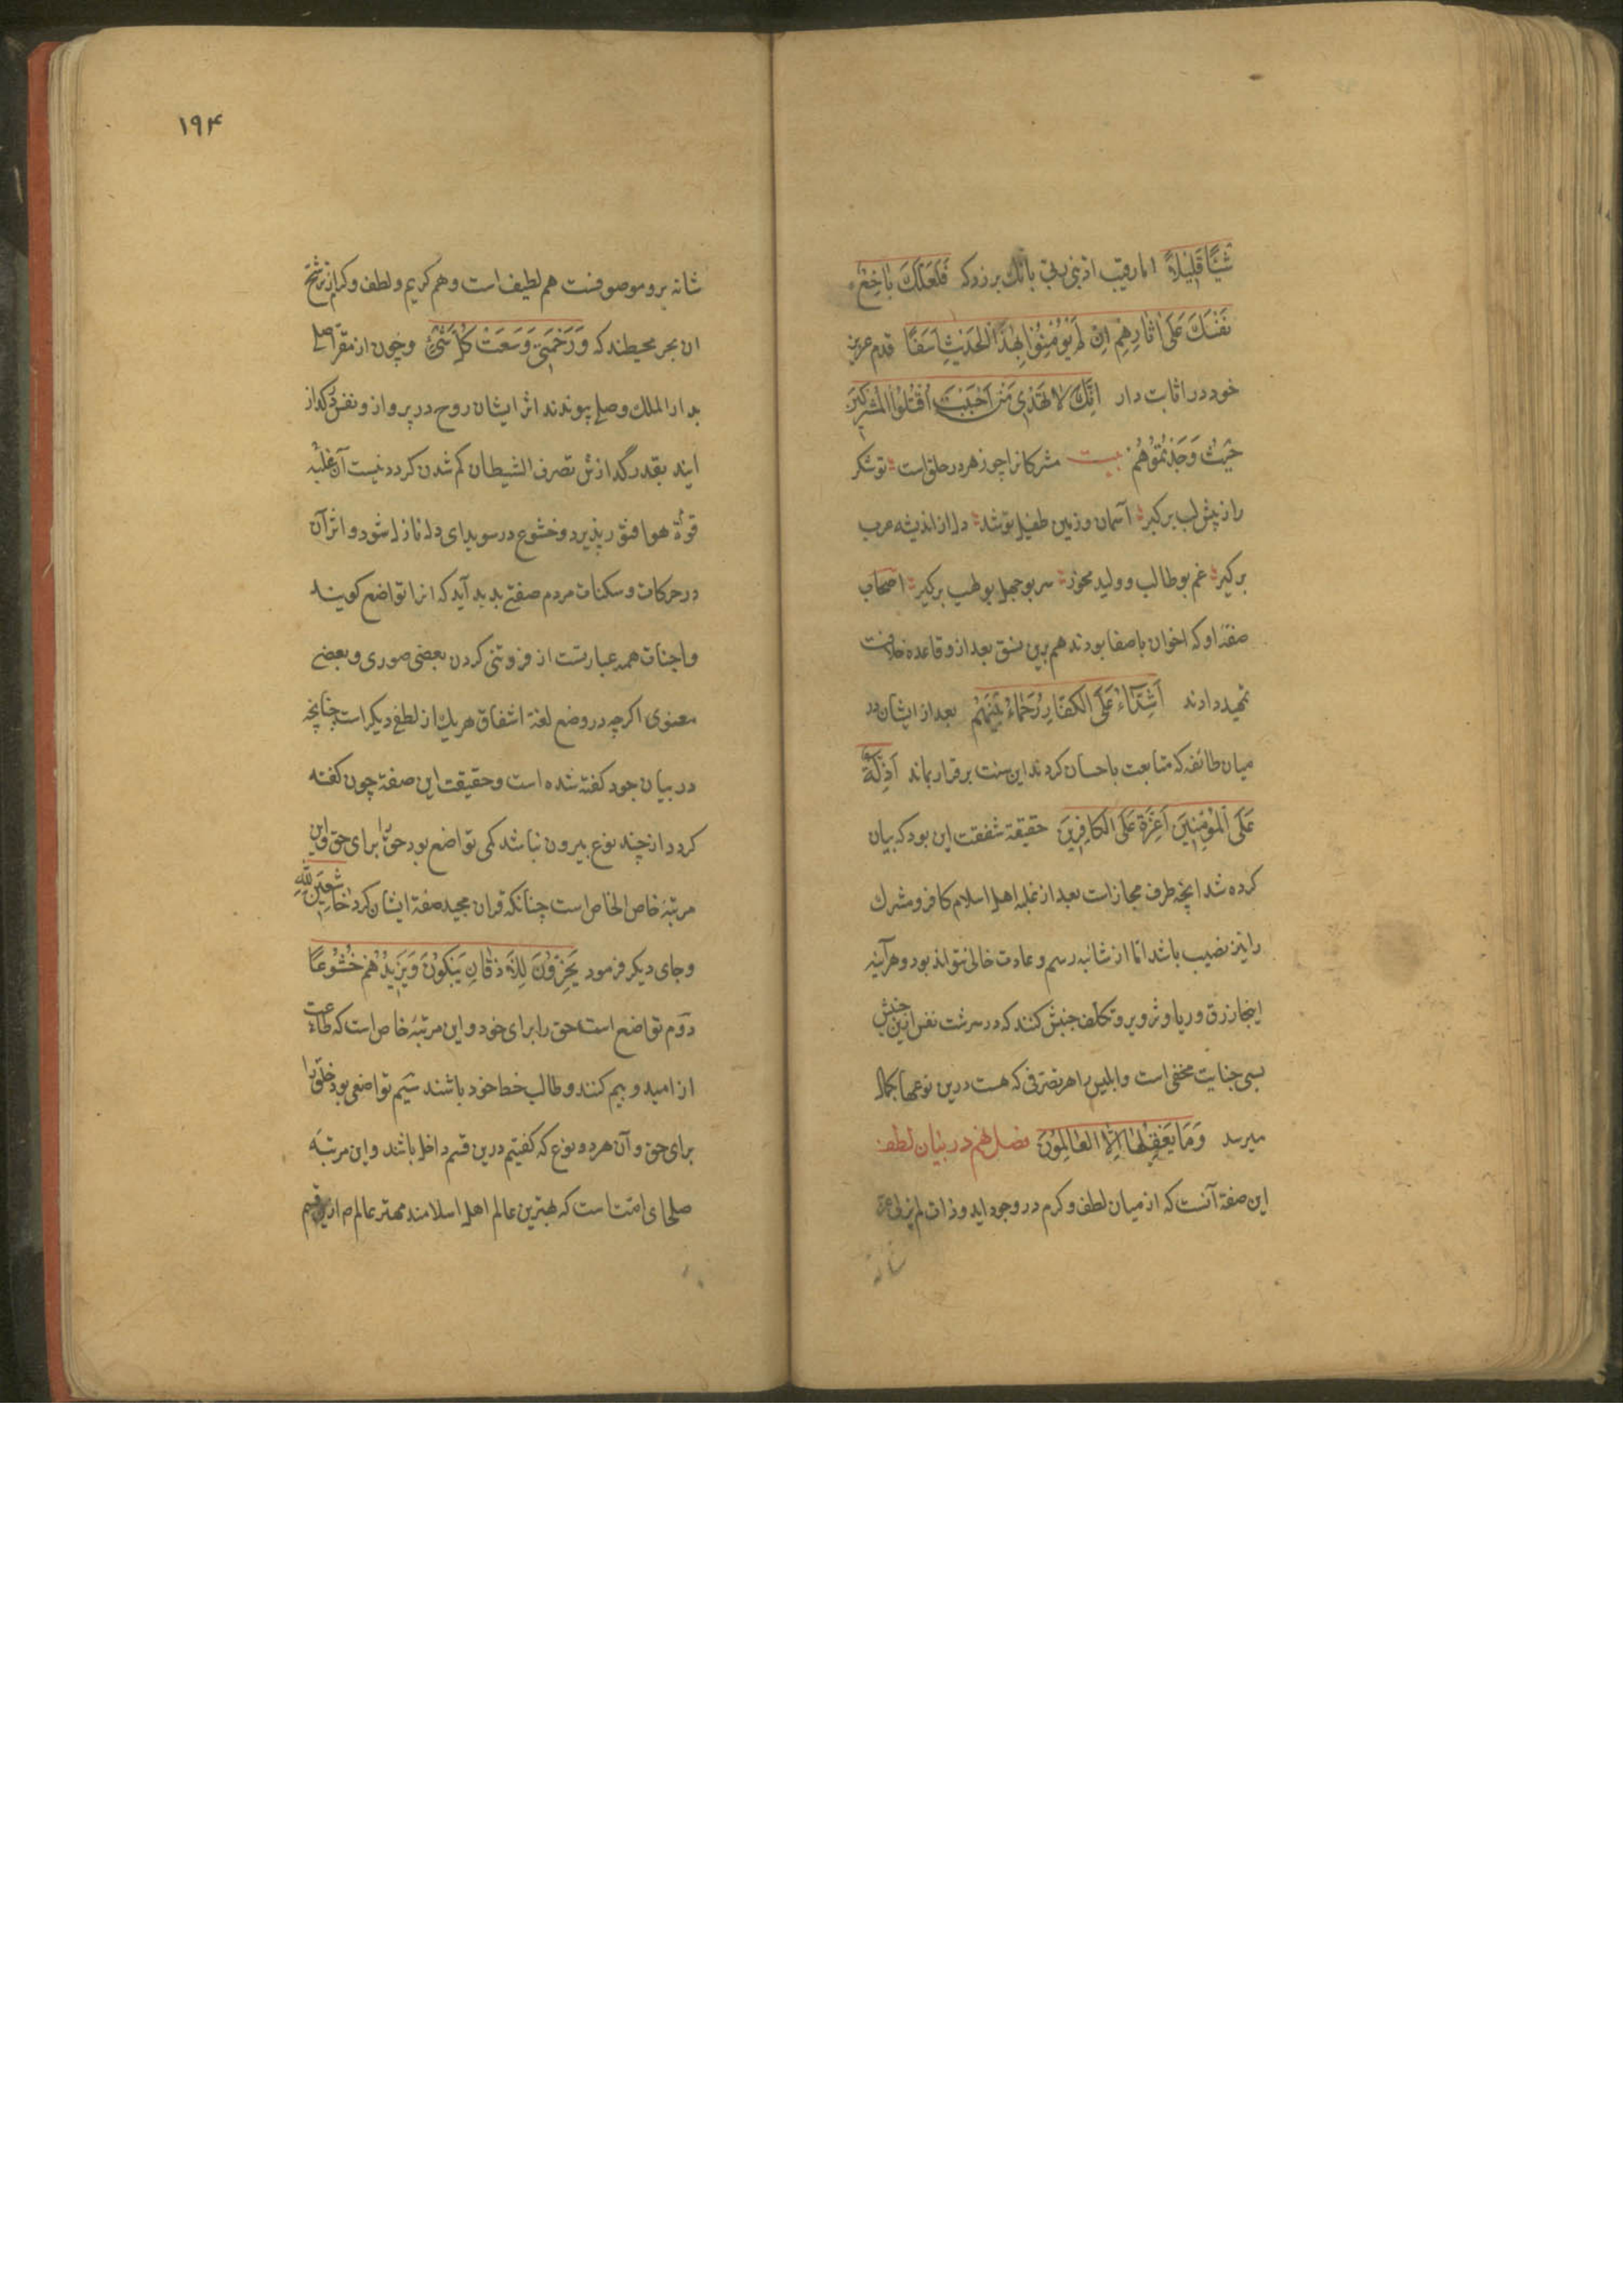 شَيْئًا قَلِيلاً اما رقیب ادبنی ربی بانک برزد که فَلَعَلَّكَ بَاخِعٌ
نَفْسَكَ عَلَى اٰثَارِهِمْ اِنْ لَمْ يُؤْمِنُوا بِهٰذَا الْحَدِيثِ اَسَفًا قدم عزیز
خود در اثابت دار اِنَّكَ لَا تَهْدِى مَنْ اَحْبَبْتَ اُقْتُلُوا الْمُشْرِكِينَ
حَيْثُ وَجَدْتُمُوهُمْ بیت مشرکانرا چو زهر در حلق است تو شکر
را ز پیش لب برکیر آسمان و زمین طفیل تو شد دل از اندیشه عرب
برکیر غم بوطالب و ولید مخور سر بوجهل بولهب برکیر اصحاب
صفهٔ او که اخوان باصفا بودند هم برین نسق بعد از و قاعده خلافت
تمهید دادند اَشِدَّآءُ عَلَى الْكُفَّارِ رُحَمَاءُ بَيْنَهُمْ بعد از ایشان در
میان طائفه که متابعت باحسان کردند این سنت برقرار بماند اَذِلَّةٍ
عَلَى الْمُؤْمِنِينَ اَعِزَّةٍ عَلَى الْكَافِرِينَ حقیقة شفقت این بود که بیان
کرده شد انچه طرف مجازات بعد از غلبه اهل اسلام کافر و مشرک
را نیز نصیب باشد اما از شائبه رسم و عادت خالی نتواند بود و هرآینه
اینجا زرق و ریا و تزویر و تکلف جنبش کنند که در سرشت نفس ازین جنس
بسی جنایت مخفی است و ابلیس را هر تصرفی که هست درین نوعها بکمال
میرسد وَمَا يَعْقِلُهَا اِلَّا الْعَالِمُونَ فصل نهم در بیان لطف
این صفة آنست که از میان لطف و کرم در وجود اید و ذات لم یزلی عز
شانه
۱۹۴
شانه برو موصوفست هم لطیف است و هم کریم و لطف و کرم از ترشح
ان بحر محیطند که وَرَحْمَتِى وَسِعَتْ كُلَّ شَىْءٍ و چون از مقر اصلی
بدار الملک وصل پیوندند اثر ایشان روح در پرواز و نفس در گداز
ایند بقدر گدازش تصرف الشیطان کم شدن کردد نیست آن غلبه
قوة هوا فتور پذیرد و خشوع در سویدای دل نازل شود و اثر آن
در حرکات و سکنات مردم صفتی پدید آید که انرا تواضع کویند
واجنات همه عبارتست از فروتنی کردن بعضی صوری و بعضی
معنوی اکرچه در وضع لغة اشقاق هر یک از لطفی دیکر است چنانچه
در بیان جود کفته شده است و حقیقت این صفة چون کفته
کردد از چند نوع بیرون نباشد یکی تواضع بود حق را برای حق و این
مرتبهٔ خاص الخاص است چنانکه قران مجید صفة ایشان کرد خَاشِعِينَ لِلّٰهِ
و جای دیکر فرمود يَخِرُّونَ لِلْاَذْقَانِ يَبْكُونَ وَيَزِيدُهُمْ خُشُوعًا
دوم تواضع است حق را برای خود و این مرتبهٔ خاص است که طاعت
از امید و بیم کنند و طالب خط خود باشند سیم تواضعی بود خلق را
برای حق و آن هر دو نوع که کفتیم درین قسم داخل باشند و این مرتبهٔ
صلحای امت است که بهترین عالم اهل اسلامند مهتر عالم ص ازین قسم